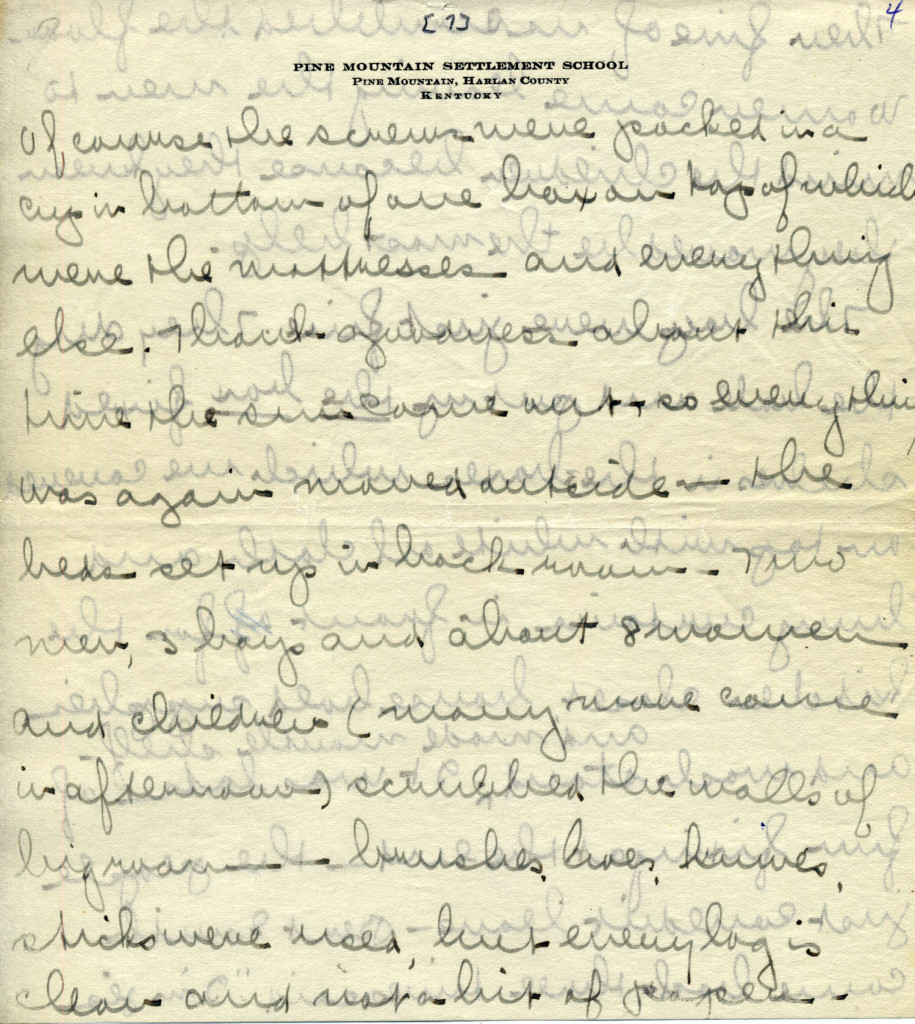 [7]
4
PINE MOUNTAIN SETTLEMENT SCHOOL
PINE MOUNTAIN, HARLAN COUNTY
KENTUCKY
Of course the screws were packed in a
cup in bottom of one box on top of which
were the mattresses and everything
else. Thank goodness about this
time the sun came out, so everything
was again moved outside — the
beds set up in back room. Two
men, 3 boys and about 8 women
and children (many more came
in afternoon) scrubbed the walls of
big room — brushes, hoes, knives,
sticks were used, but every log is
clean and not a bit of paper -